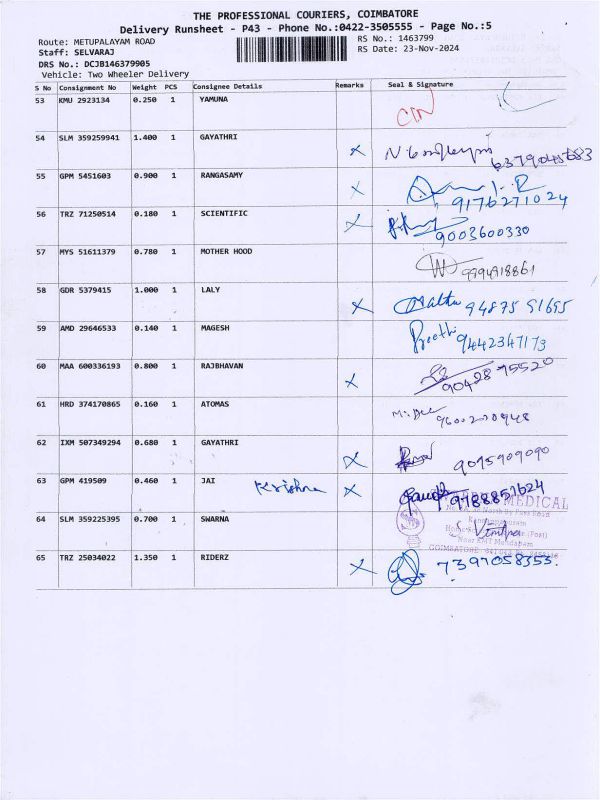 THE PROFESSIONAL COURIERS, COIMBATORE
Delivery Runsheet - P43 - Phone No.:0422-3505555 - Page No.:5
Route: METUPALAYAM ROAD RS No.: 1463799
Staff: SELVARAJ RS Date: 23-Nov-2024
DRS No.: DCJB146379905
Vehicle: Two Wheeler Delivery
S No Consignment No Weight PCS Consignee Details Remarks Seal & Signature
53 KMU 2923134 0.250 1 YAMUNA
54 SLM 359259941 1.400 1 GAYATHRI X
55 GPM 5451603 0.900 1 RANGASAMY X 9176271024
56 TRZ 71250514 0.180 1 SCIENTIFIC X 9003600330
57 MYS 51611379 0.780 1 MOTHER HOOD 9994918861
58 GDR 5379415 1.000 1 LALY X 94875 91695
59 AMD 29646533 0.140 1 MAGESH Preethi 9442347173
60 MAA 600336193 0.800 1 RAJBHAVAN X 90428 75520
61 HRD 374170865 0.160 1 ATOMAS
62 IXM 507349294 0.680 1 GAYATHRI X 9095909090
63 GPM 419509 0.460 1 JAI Krishna X 9788851624
MEDICAL
64 SLM 359225395 0.700 1 SWARNA
COIMBATORE
65 TRZ 25034022 1.350 1 RIDERZ X 7397058353.